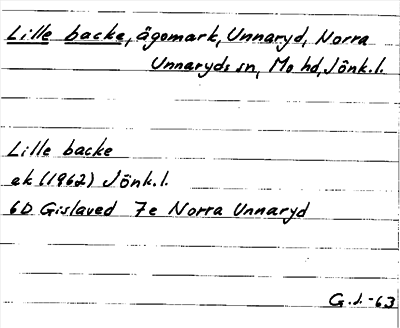 Lille backe, ägomark, Unnaryd, Norra
Unnaryds sn, Mo hd, Jönk.l.
Lille backe
ek (1962) Jönk.l.
6D Gislaved 7e Norra Unnaryd
G.J.-63